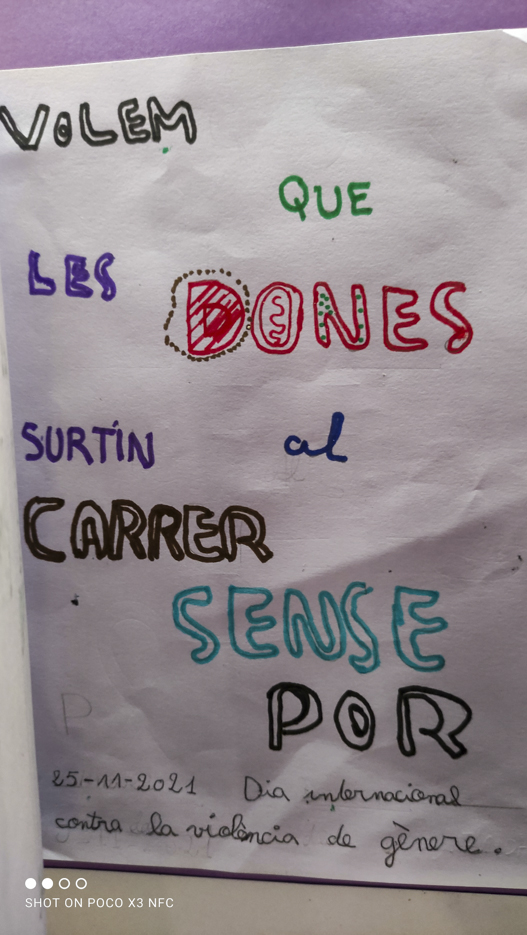 VOLEM
QUE
LES DONES
SURTIN al
CARRER
SENSE
P POR
25-11-2021 Dia internacional
contra la violència de gènere.
SHOT ON POCO X3 NFC